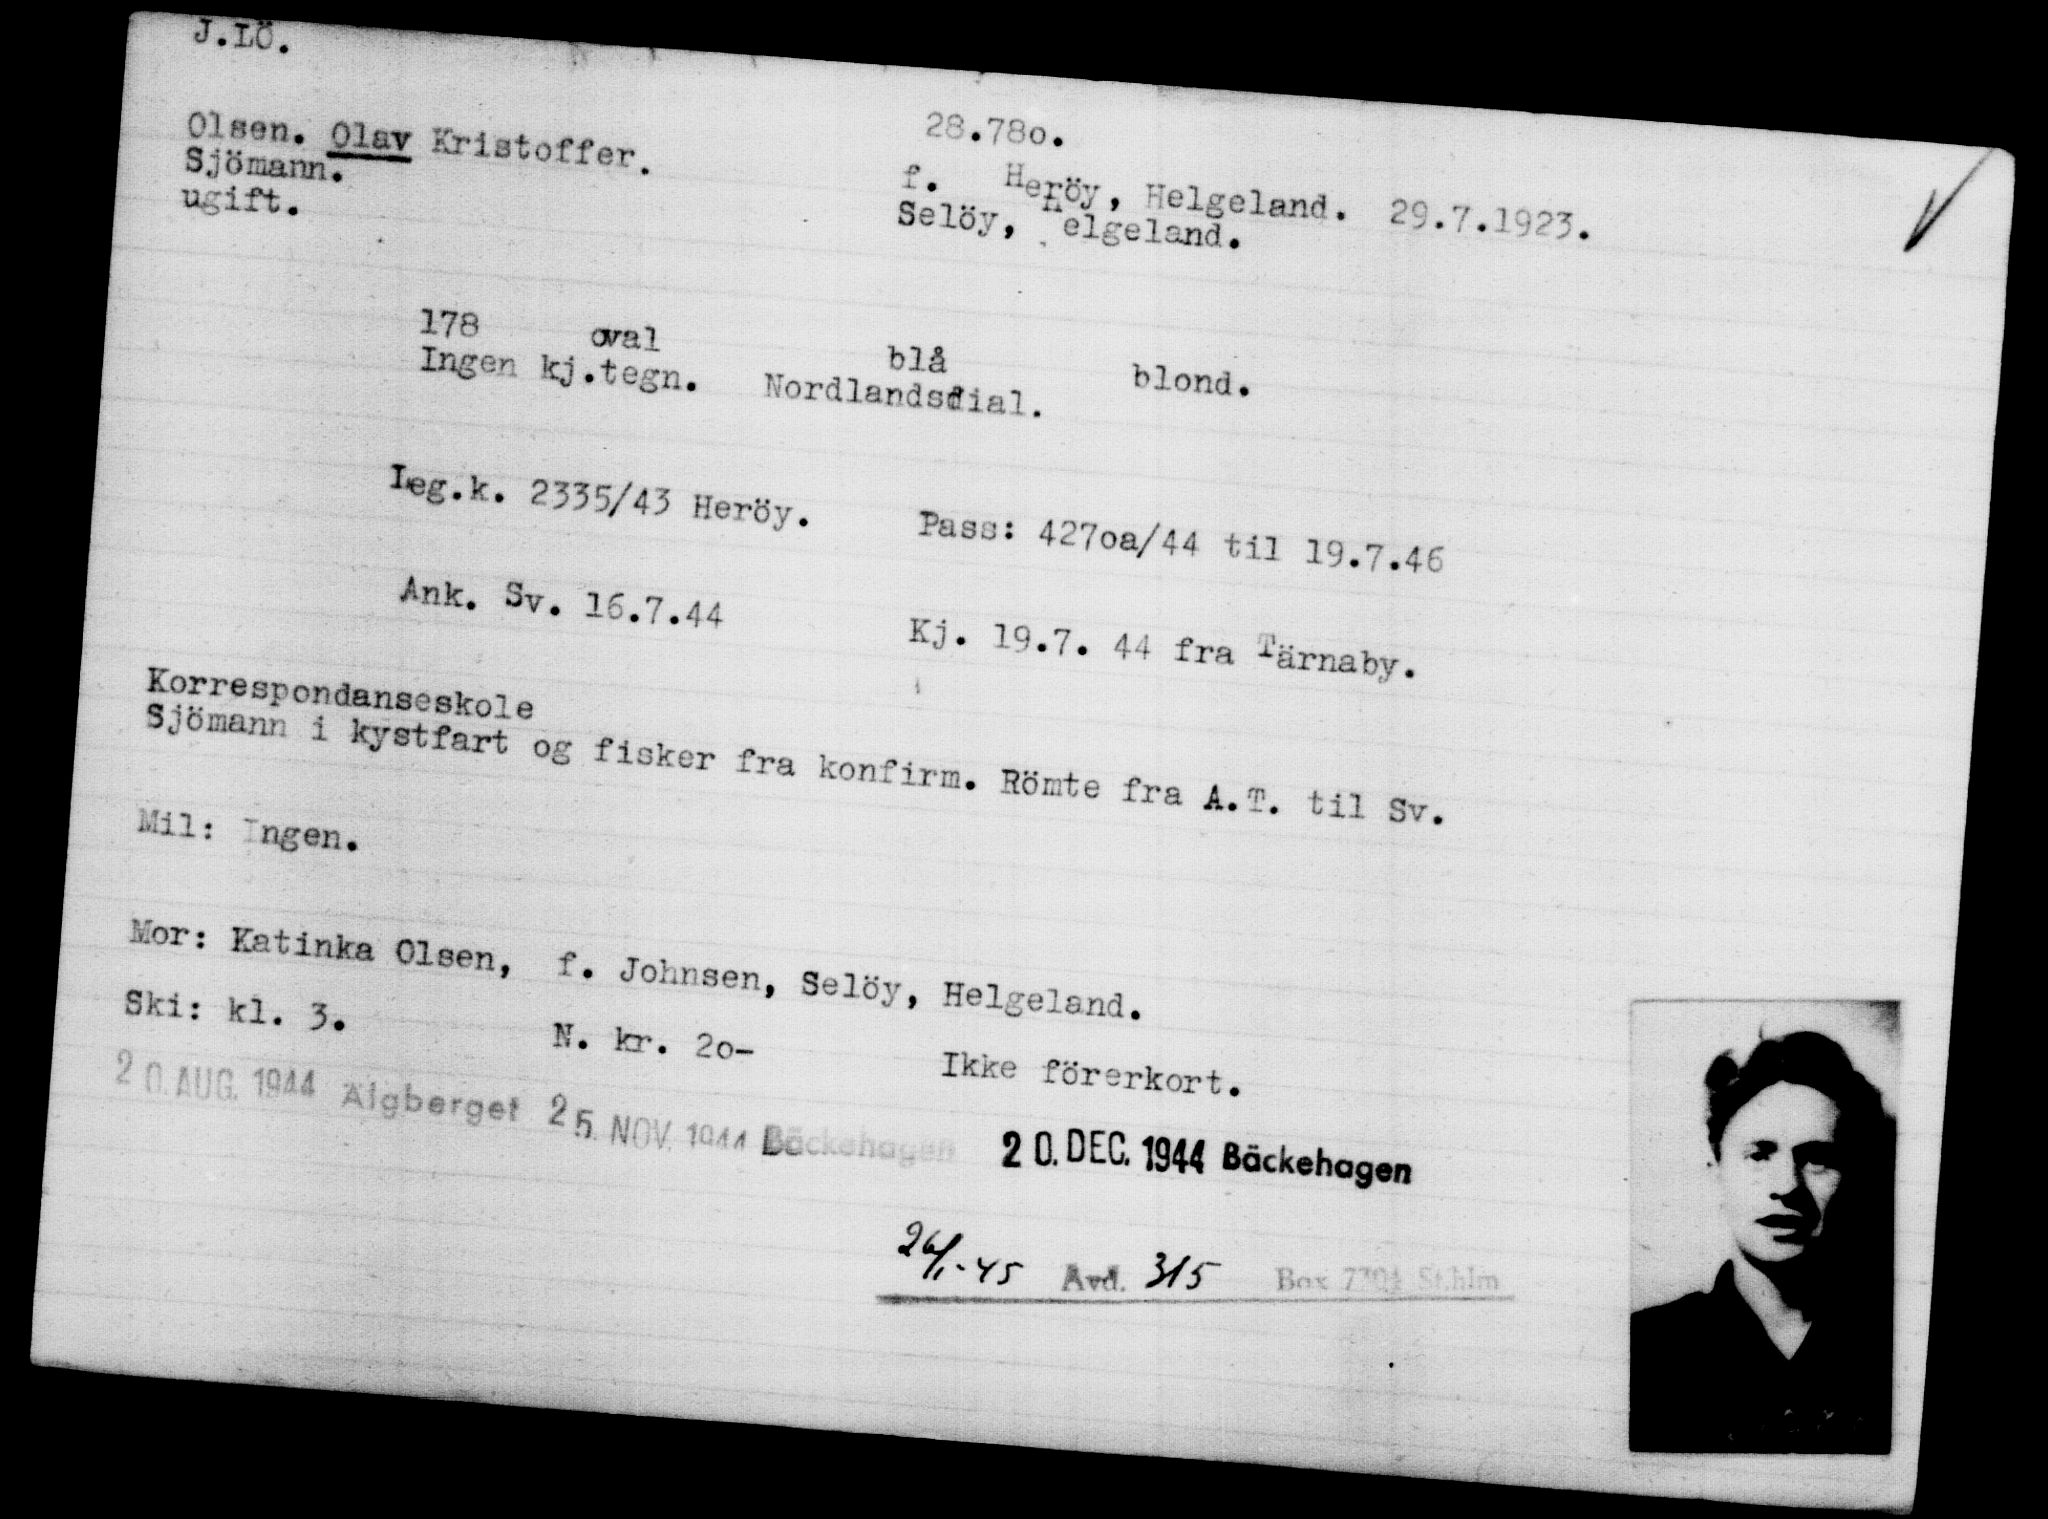 J.LÖ.
Olsen. Olav Kristoffer. 28.78o.
Sjömann. f. Heröy, Helgeland. 29.7.1923.
ugift. Selöy, Helgeland.
178 oval blå blond.
Ingen kj.tegn. Nordlandsdial.
Leg.k. 2335/43 Heröy. Pass: 427oa/44 til 19.7.46
Ank. Sv. 16.7.44 Kj. 19.7. 44 fra Tärnaby.
Korrespondanseskole
Sjömann i kystfart og fisker fra konfirm. Römte fra A.T. til Sv.
Mil: Ingen.
Mor: Katinka Olsen, f. Johnsen, Selöy, Helgeland.
Ski: kl. 3. N. kr. 2o- Ikke förerkort.
20. AUG. 1944 Älgberget 25. NOV. 1944 Bäckehagen 20. DEC. 1944 Bäckehagen
26/1-45 Avd. 315 Box St.hlm